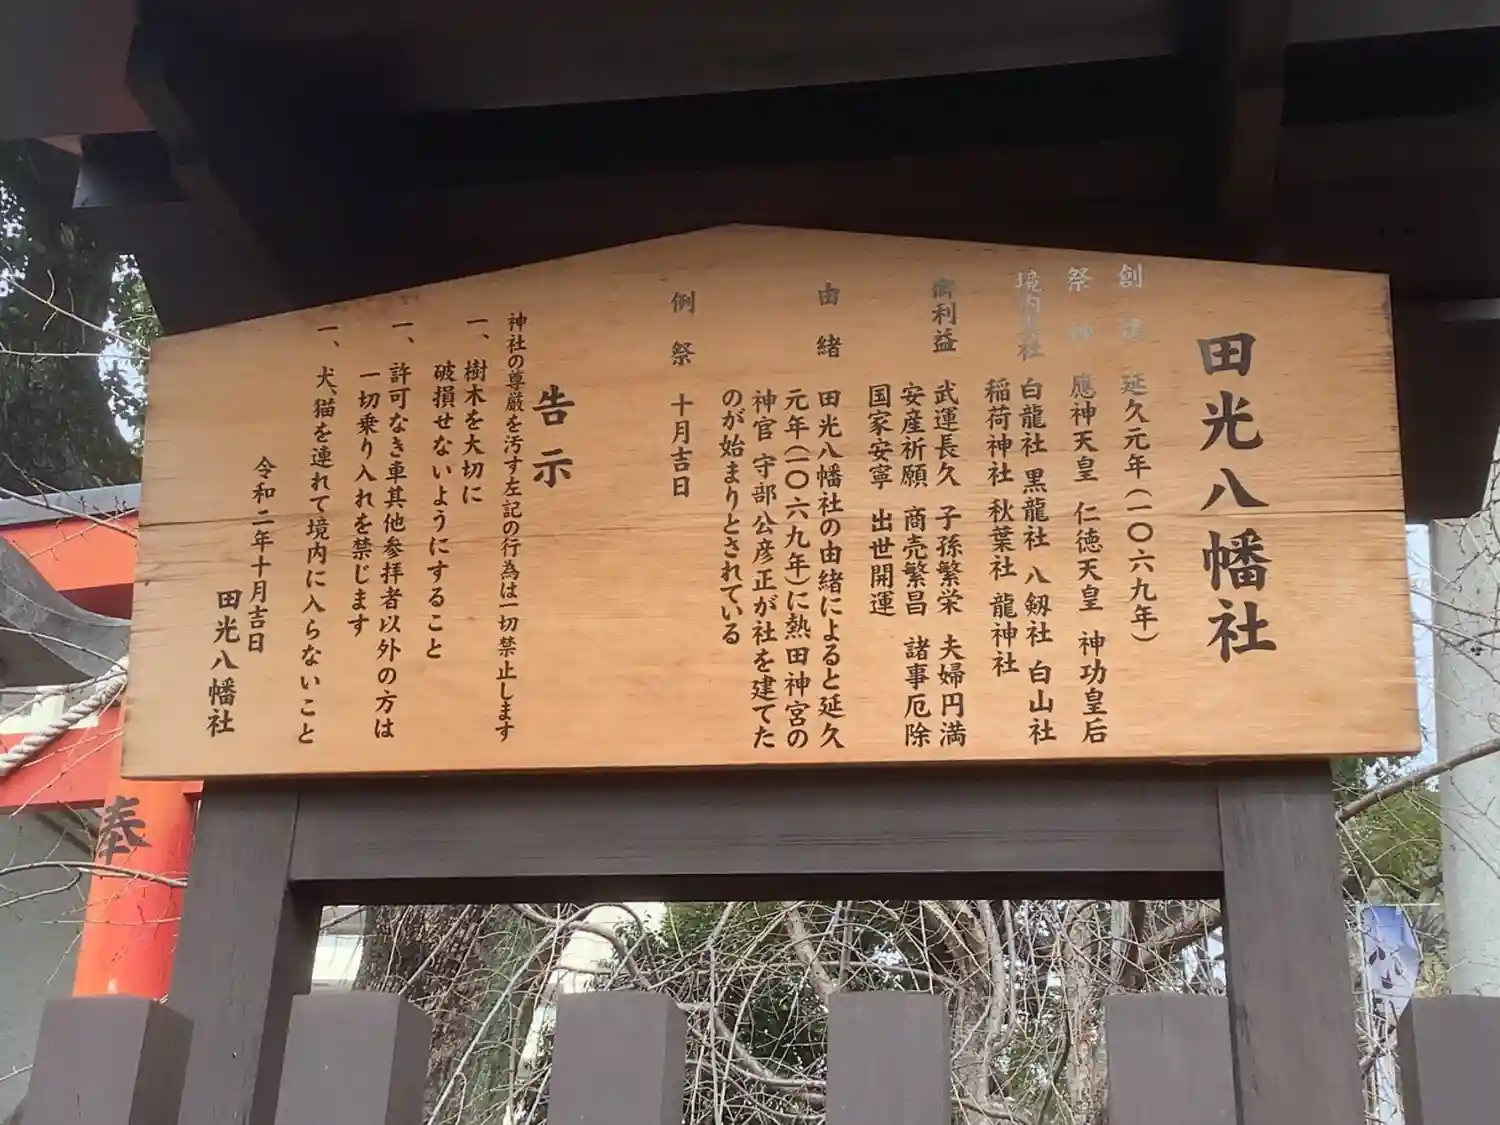 田光八幡社
創建 延久元年(一〇六九年)
祭神 應神天皇 仁徳天皇 神功皇后
境内末社 白龍社 黒龍社 八剱社 白山社
稲荷神社 秋葉社 龍神社
御利益 武運長久 子孫繁栄 夫婦円満
安産祈願 商売繁昌 諸事厄除
国家安寧 出世開運
由緒 田光八幡社の由緒によると延久
元年(一〇六九年)に熱田神宮の
神官 守部公彦正が社を建てた
のが始まりとされている
例祭 十月吉日
告示
神社の尊厳を汚す左記の行為は一切禁止します
一、樹木を大切に
破損せないようにすること
一、許可なき車其他参拝者以外の方は
一切乗り入れを禁じます
一、犬、猫を連れて境内に入らないこと
令和二年十月吉日
田光八幡社
奉